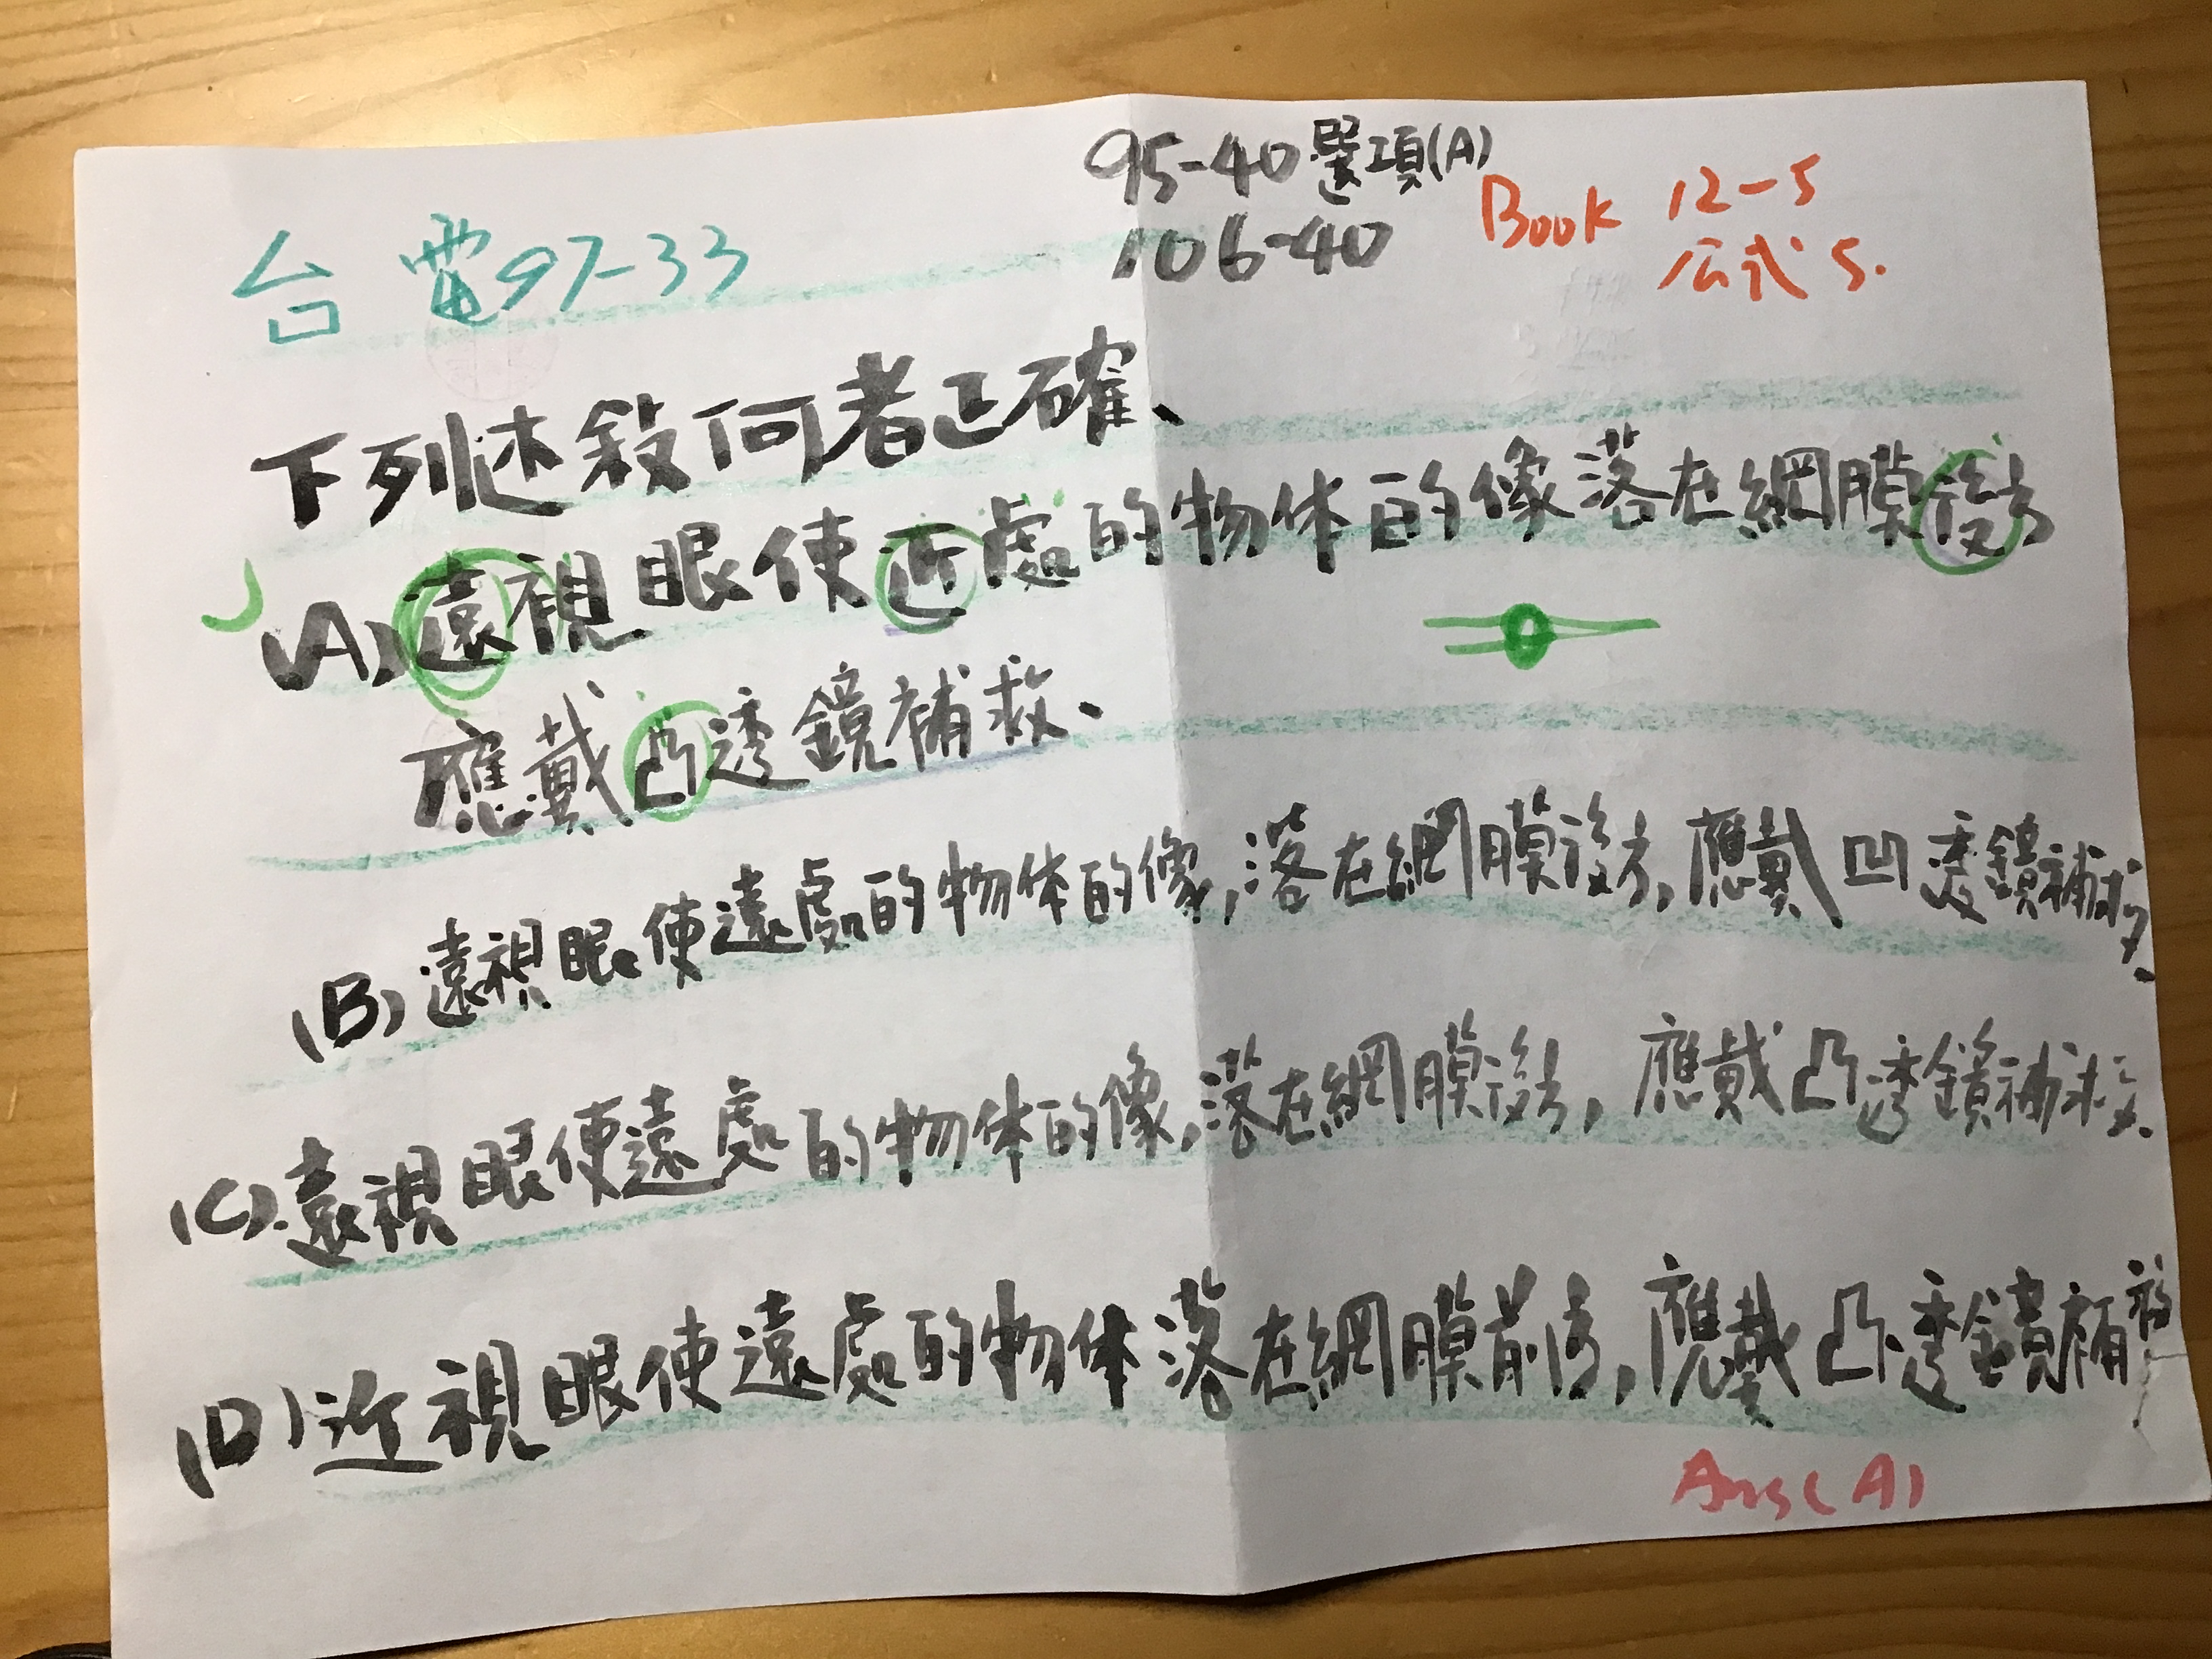 95-40選項(A)
106-40
Book 12-5
公式 5.
台電97-33
下列述敘何者正確、
(A)遠視眼使近處的物体的像落在網膜後方
應戴凸透鏡補救、
(B)遠視眼使遠處的物体的像,落在網膜後方,應戴凹透鏡補救、
(C).遠視眼使遠處的物体的像,落在網膜後方,應戴凸透鏡補救.
(D)近視眼使遠處的物体落在網膜前方,應戴凸透鏡補救
Ans(A)